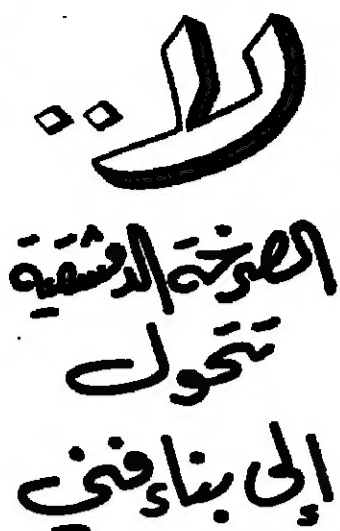 لا..
الصرخة الدمشقية
تتحول
إلى بناء فني